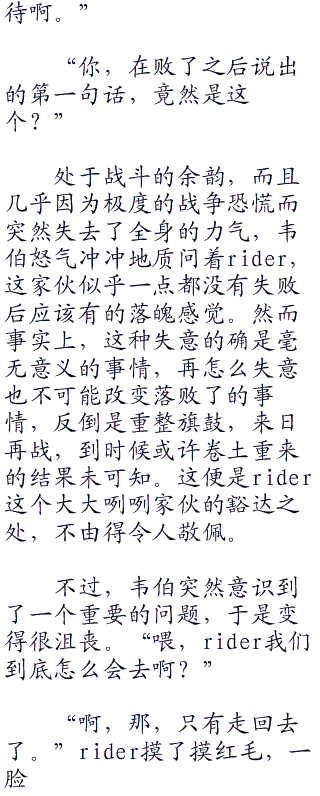 待啊。”
“你，在败了之后说出
的第一句话，竟然是这
个？”
处于战斗的余韵，而且
几乎因为极度的战争恐慌而
突然失去了全身的力气，韦
伯怒气冲冲地质问着rider，
这家伙似乎一点都没有失败
后应该有的落魄感觉。然而
事实上，这种失意的确是毫
无意义的事情，再怎么失意
也不可能改变落败了的事
情，反倒是重整旗鼓，来日
再战，到时候或许卷土重来
的结果未可知。这便是rider
这个大大咧咧家伙的豁达之
处，不由得令人敬佩。
不过，韦伯突然意识到
了一个重要的问题，于是变
得很沮丧。“喂，rider我们
到底怎么会去啊？”
“啊，那，只有走回去
了。”rider摸了摸红毛，一
脸